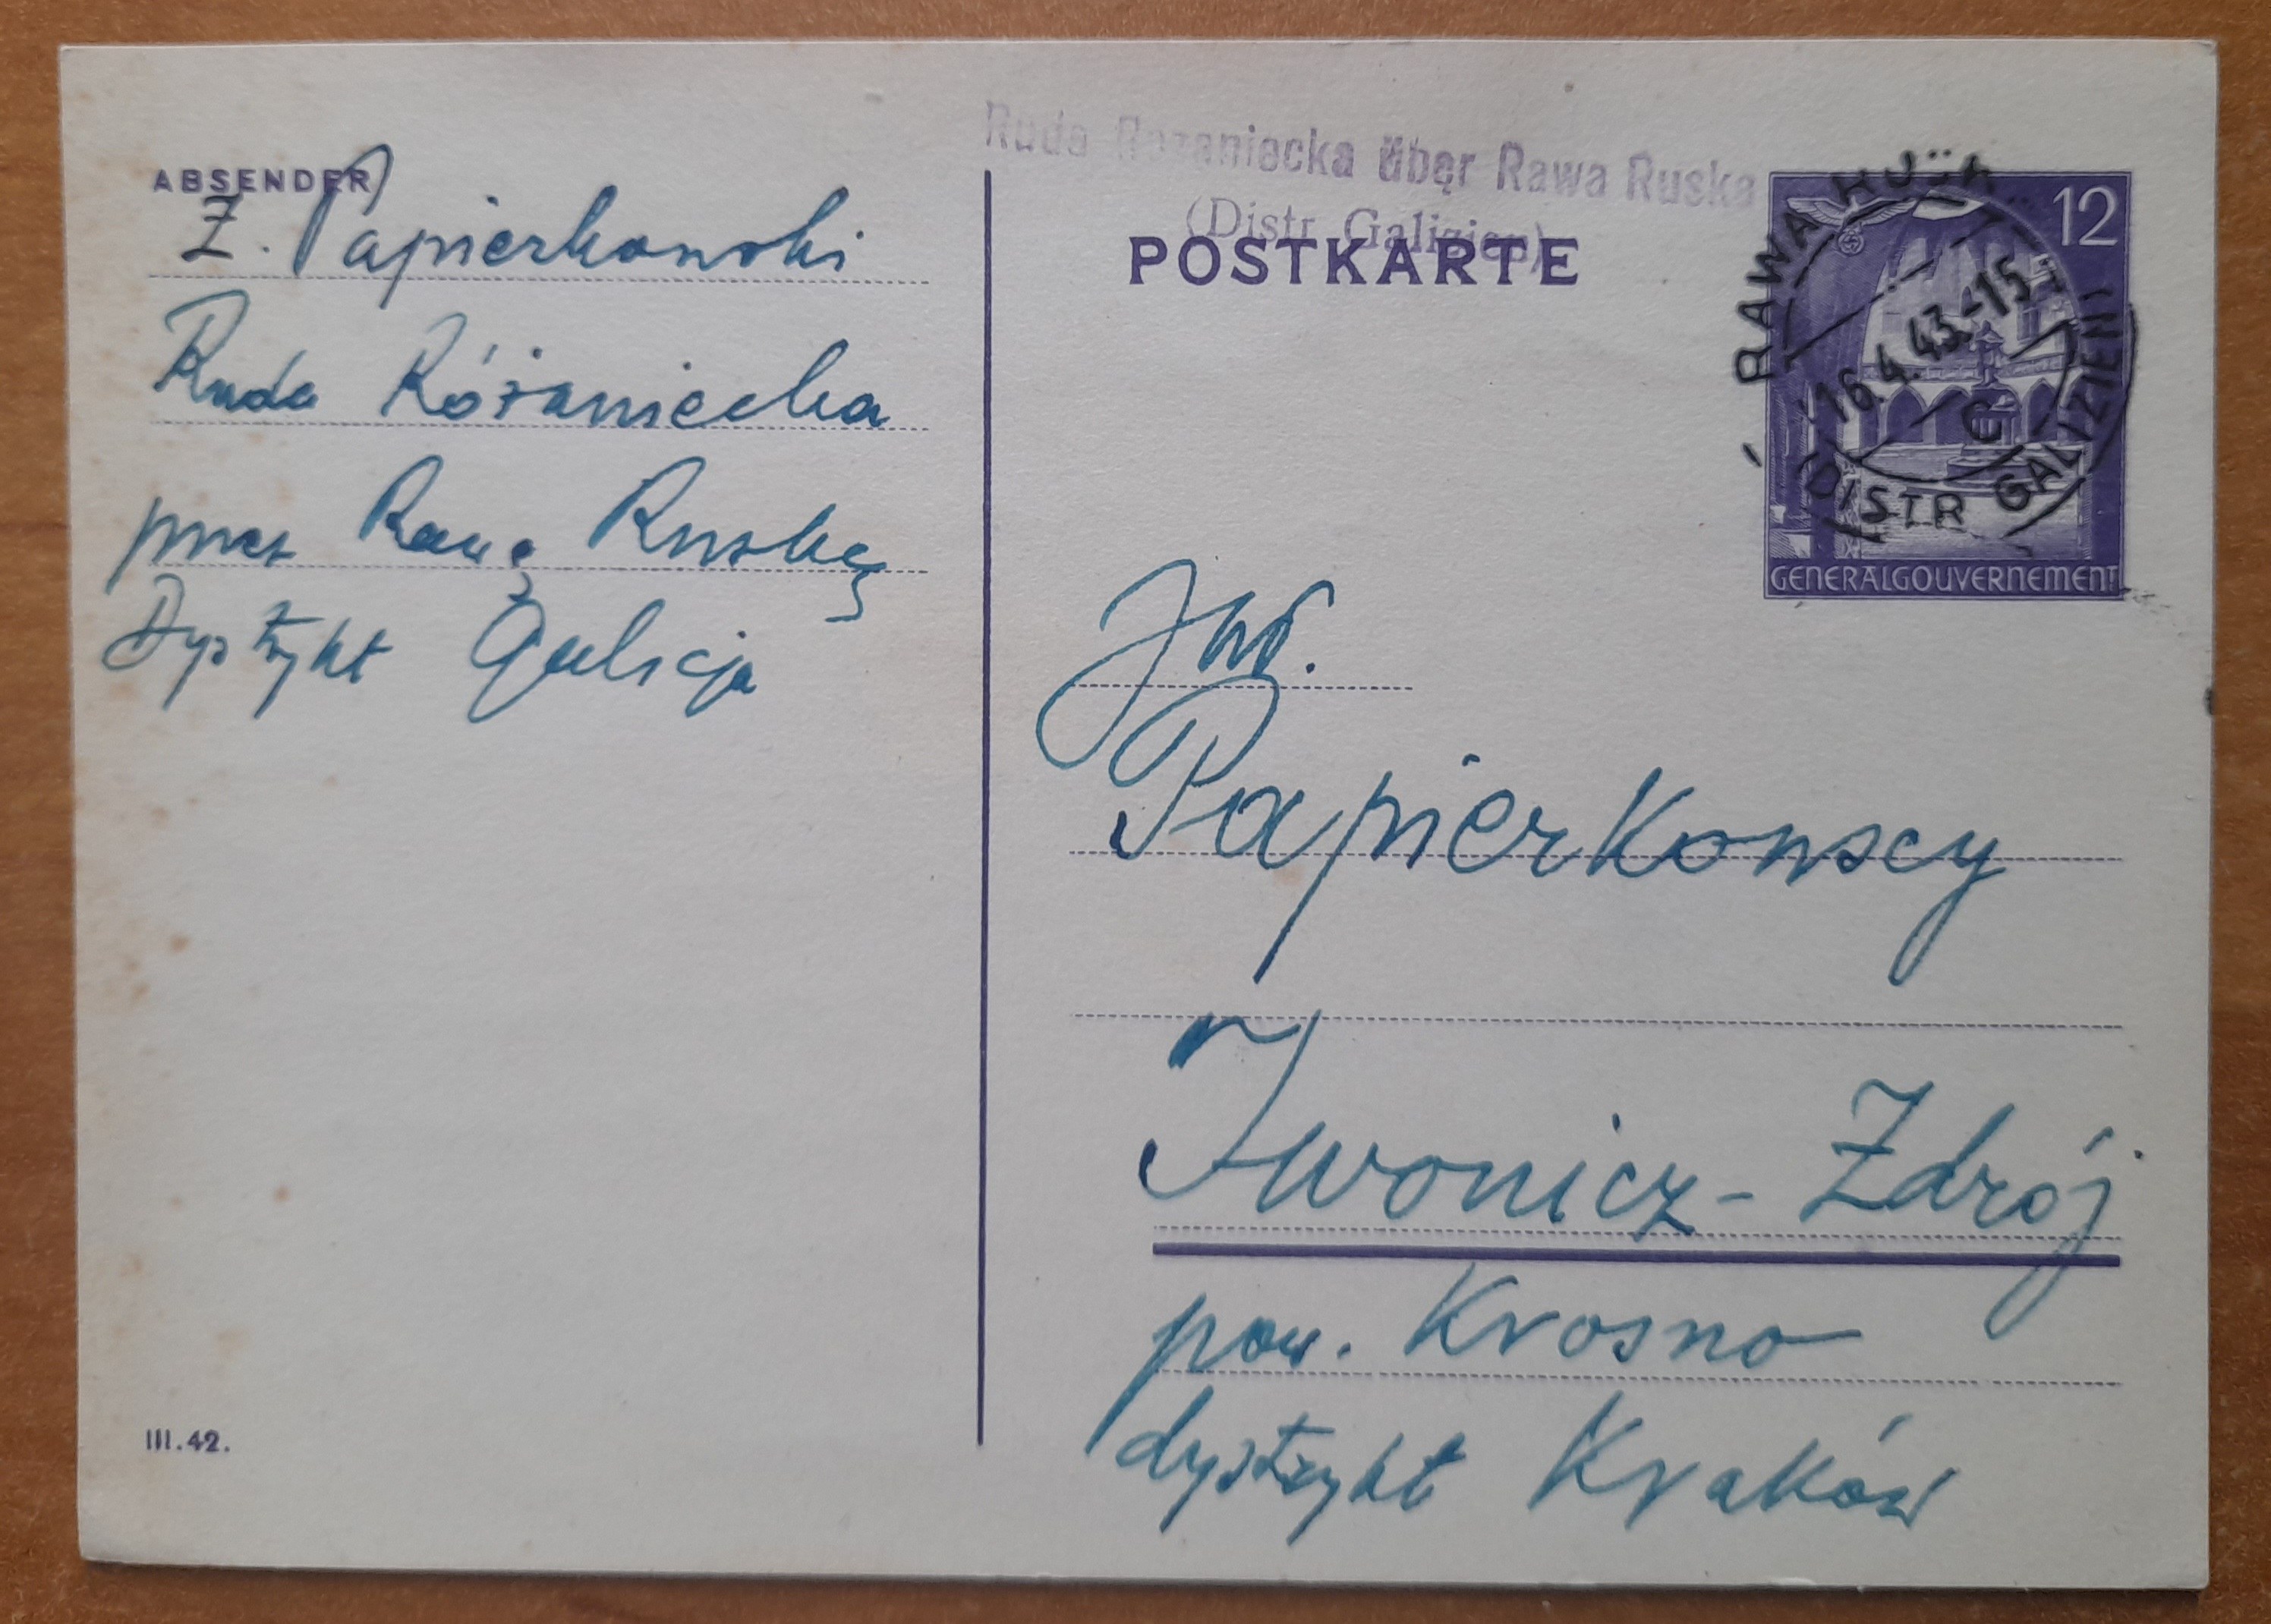 ABSENDER
Z. Papierkowski
Ruda Różaniecka
przez Rawę Ruską
Dystrykt Galicja
III.42.
Ruda Rozaniecka über Rawa Ruska
(Distr. Galizien)
POSTKARTE
12
RAWA RUSKA
16.4.43.-15
C
(DISTR GALIZIEN)
GENERALGOUVERNEMENT
JWP.
Papierkowscy
Iwonicz-Zdrój
pow. Krosno
dystrykt Kraków